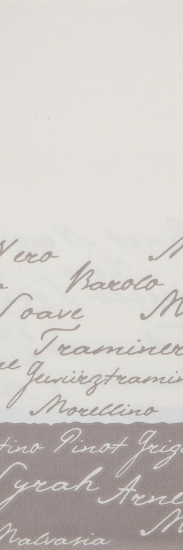 Vero M
Barolo
Soave M
Traminer
Gewürztramin
Morellino
tino Pinot Grig
Syrah Arne
M
Malvasia